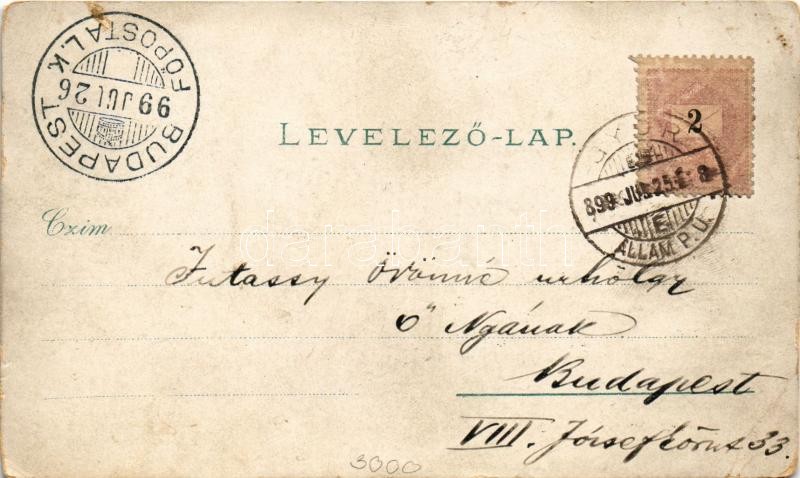 BUDAPEST
FŐPOSTAI.K
99 JUL 26
LEVELEZŐ-LAP.
2
GYŐR
899 JUL 25
E
ÁLLAM P.U.
Czim
darabanth
Jutassy Ödönné urhölgy
ő Ngának
Budapest
VIII. Józsefkörut 33.
3000